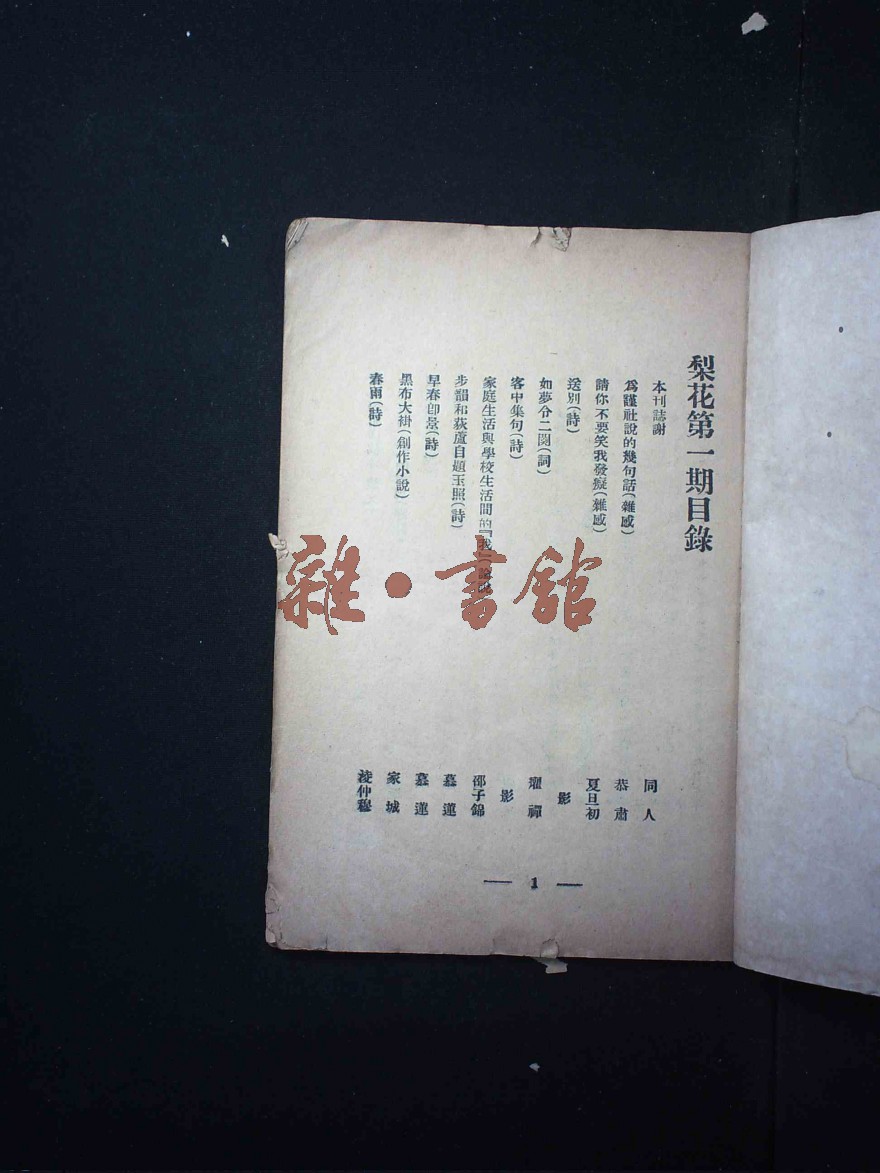 梨花第一期目錄
本刊誌謝
同人
為謹社說的幾句話(雜感)
恭肅
請你不要笑我發癡(雜感)
夏旦初
送別(詩)
影
如夢令二闋(詞)
禪
客中集句(詩)
影
家庭生活與學校生活間的『我』(論說)
邵子錦
步韻和荻蘆自題玉照(詩)
慕蓮
早春即景(詩)
慕蓮
黑布大褂(創作小說)
家城
春雨(詩)
淩仲穆
— 1 —
雜·書館